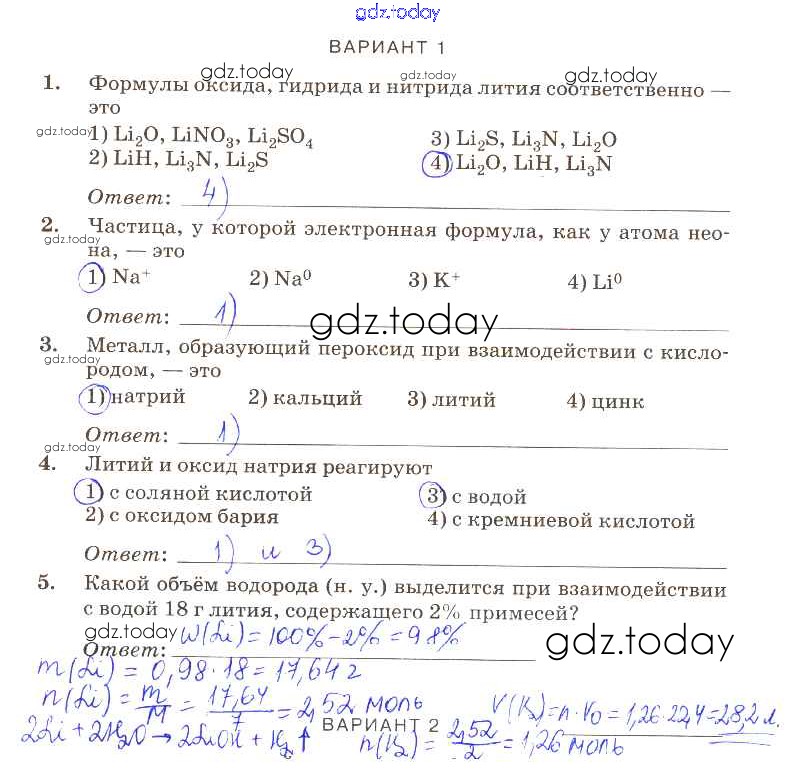 gdz.today
ВАРИАНТ 1
gdz.today gdz.today gdz.today
1. Формулы оксида, гидрида и нитрида лития соответственно —
это
gdz.today
1) Li₂O, LiNO₃, Li₂SO₄ 3) Li₂S, Li₃N, Li₂O
2) LiH, Li₃N, Li₂S 4) Li₂O, LiH, Li₃N
Ответ: 4)
2. Частица, у которой электронная формула, как у атома нео-
gdz.today
на, — это
1) Na⁺ 2) Na⁰ 3) K⁺ 4) Li⁰
Ответ: 1)
gdz.today
3. Металл, образующий пероксид при взаимодействии с кисло-
gdz.today
родом, — это
1) натрий 2) кальций 3) литий 4) цинк
Ответ: 1)
gdz.today
4. Литий и оксид натрия реагируют
1) с соляной кислотой 3) с водой
2) с оксидом бария 4) с кремниевой кислотой
Ответ: 1) и 3)
5. Какой объём водорода (н. у.) выделится при взаимодействии
с водой 18 г лития, содержащего 2% примесей?
gdz.today gdz.today
Ответ: W(Li) = 100% − 2% = 98%
m(Li) = 0,98 · 18 = 17,64 г
n(Li) = m/M = 17,64/7 = 2,52 моль
V(H₂) = n · V₀ = 1,26 · 22,4 = 28,2 л.
ВАРИАНТ 2
2Li + 2H₂O → 2LiOH + H₂ ↑ n(H₂) = 2,52/2 = 1,26 моль